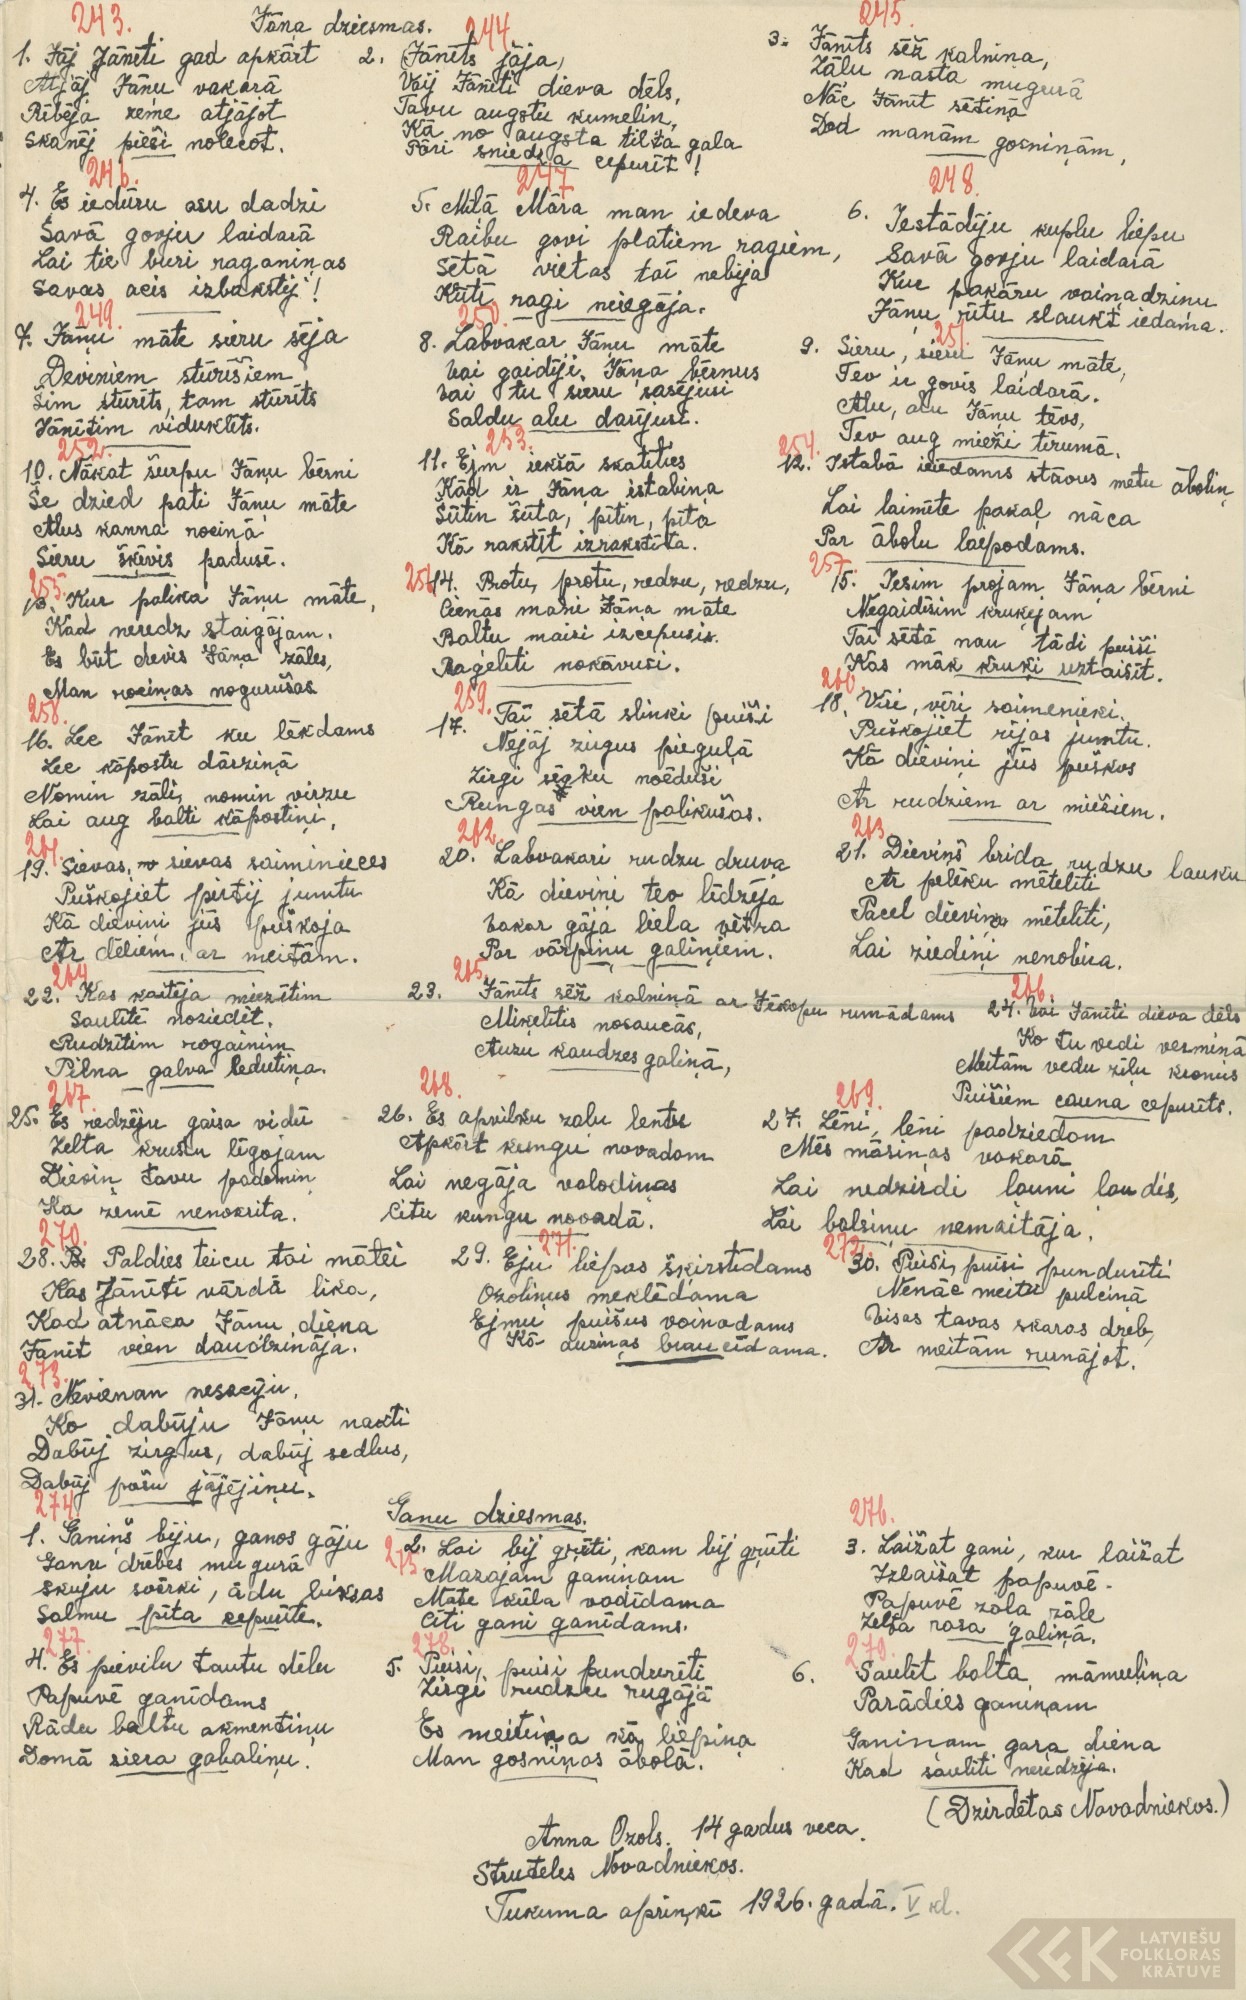 Jāņa dziesmas.
243.
1. Jāj Jānīti gad apkārt
Atjāj Jāņu vakarā
Rībēja zeme atjājot
Skanēj pieši nolecot.
244
2. Jānīts jāja,
Vāij Jānīti dieva dēls,
Tavu augstu kumeliņ,
Kā no augsta tilta gala
Pāri sniedza cepurīt!
245.
3. Jānīts sēž kalniņa,
Zāļu nasta mugurā
Nāc Jānīt sētiņā
Dod manām gosniņām,
246.
4. Es iedūru asu dadzi
Savā govju laidarā
Lai tie buri raganiņas
Savas acis izbakstij!
247
5. Mīļā Māra man iedeva
Raibu govi platiem ragiem,
Sētā vietas tai nebija
Kūtī ragi neiegāja.
248.
6. Iestādīju kuplu liepu
Savā govju laidarā
Kur pakāru vaiņadziņu
Jāņu rītu slaukt iedama.
249.
7. Jāņu māte sieru sēja
Deviņiem stūrīšiem
Šim stūrīts, tam stūrīts
Jānīšim viduklīts.
250.
8. Labvakar Jāņu māte
Vai gaidīji Jāņa bērnus
Vai tu sieru sasējusi
Saldu alu darījusi.
251.
9. Sieru, sieru Jāņu māte,
Tev ir govis laidarā.
Alu, alu Jāņu tēvs,
Tev aug mieži tīrumā.
252.
10. Nākat šurpu Jāņu bērni
Še dzied pati Jāņu māte
Alus kanna rociņā,
Sieru šķēvis padusē.
253.
11. Ejm iekšā skatīties
Kād ir Jāņa istabiņa
Šūtin šūta, pītin, pīta
Kā rakstīt izrakstīta.
254.
12. Istabā ieiedams stāvus metu āboliņ
Lai laimīte pakaļ nāca
Par ābolu laipodams.
255.
13. Kur palika Jāņu māte,
Kad neredz staigājam.
Es būt devis Jāņa zāles,
Man rociņas nogurušas
256
14. Protu, protu, redzu, redzu,
Cienās mani Jāņa māte
Baltu maizi izcepusis.
Ragelīti nokāvusi.
257
15. Iesim projam Jāņa bērni
Negaidīsim kruķejam
Tai sētā nau tādi puiši
Kas māk kruķi uztaisīt.
258.
16. Lec Jānīt ku lēkdams
Lec kāpostu dārziņā
Nomin zāli, nomin virzu
Lai aug balti kāpostiņi,
259.
17. Tai sētā slinki puiši
Nejāj zirgus pieguļā
Zirgi sēgku noēduši
Rungas vien palikušas.
260
18. Vīri, vīri saimenieki
Puškojiet rijas jumtu.
Kā dieviņi jūs puškos
Ar rudziem ar miežiem.
261.
19. Sievas, sievas saiminieces
Puškojiet pirtij jumtu
Kā dieviņi jūs puškoja
Ar dēliem, ar meitām.
262.
20. Labvakari rudzu druva
Kā dieviņi tev līdzēja
Vakar gāja liela vētra
Par vārpiņu galiņiem.
263
21. Dieviņš brida rudzu lauku
Ar pelēku mētelīti
Pacel dieviņ mētelīti,
Lai ziediņi nenobira.
264
22. Kas kaitēja miezītim
Saulītē noziedēt.
Rudzītim rogainim
Pilna galva ledutiņa.
265.
23. Jānīts sēž kalniņā ar Jēkopu runādams
Miķelītis nosaucās,
Auzu kaudzes galiņā,
266.
24. Vai Jānīti dieva dēls
Ko tu vedi vezmiņā
Meitām vedu zīļu kronis
Puišiem cauna cepurīts.
267
25. Es redzēju gaisa vidū
Zelta krustu līgojam
Dieviņ tavu padomiņ
Ka zemē nenokrita.
268.
26. Es apvilku zaļu lentu
Apkārt kungu novadam
Lai negāja valodiņas
Citu kungu novadā.
269.
27. Lēni, lēni padziedam
Mēs māsiņas vakarā
Lai nedzirdi ļauni ļaudis,
Lai balsiņu nemaitāja.
270.
28. Paldies teicu tai mātei
Kas Jānīti vārdā lika,
Kad atnāca Jāņu diena
Jānīt vien daudzināja.
271.
29. Eju liepas šķirstīdams
Ozoliņus meklēdama
Ejmu puišus vainadams
Kā auziņas braucīdama.
272.
30. Puisi, puisi pundurīti
Nenāc meitu pulciņā
Visas tavas skaras dreb,
Ar meitām runājot.
273.
31. Nevienan nesacīju,
Ko dabūju Jāņu nakti
Dabūj zirgus, dabūj sedlus,
Dabūj pašu jājējiņu.
Ganu dziesmas.
274
1. Ganiņš biju, ganos gāju
Ganu drēbes mugurā
Skuju svārki, ādu bikses
Salmu pīta cepurīte.
275
2. Lai bij grūti, kam bij grūti
Mazajam ganiņam
Māte kūla vadīdama
Citi gani ganīdams.
276.
3. Laižat gani, kur laižat
Izlaižat papuvē.
Papuvē zaļa zāle
Zelta rasa galiņā.
277.
4. Es pievilu tautu dēlu
Papuvē ganīdams
Rādu baltu akmentiņu
Domā siera gabaliņu.
278.
5. Puisi, puisi pundurīti
Zirgi rudzu rugājā
Es meitiņa kā liepiņa
Man gosniņas ābolā.
279.
6. Saulīt balta māmuliņa
Parādies ganiņam
Ganiņam gara diena
Kad saulīti neredzēja.
(Dzirdētas Novadniekos.)
Anna Ozols. 14 gadus veca.
Struteles Novadniekos.
Tukuma apriņķī 1926. gadā. V kl.
LATVIEŠU
FOLKLORAS
KRĀTUVE